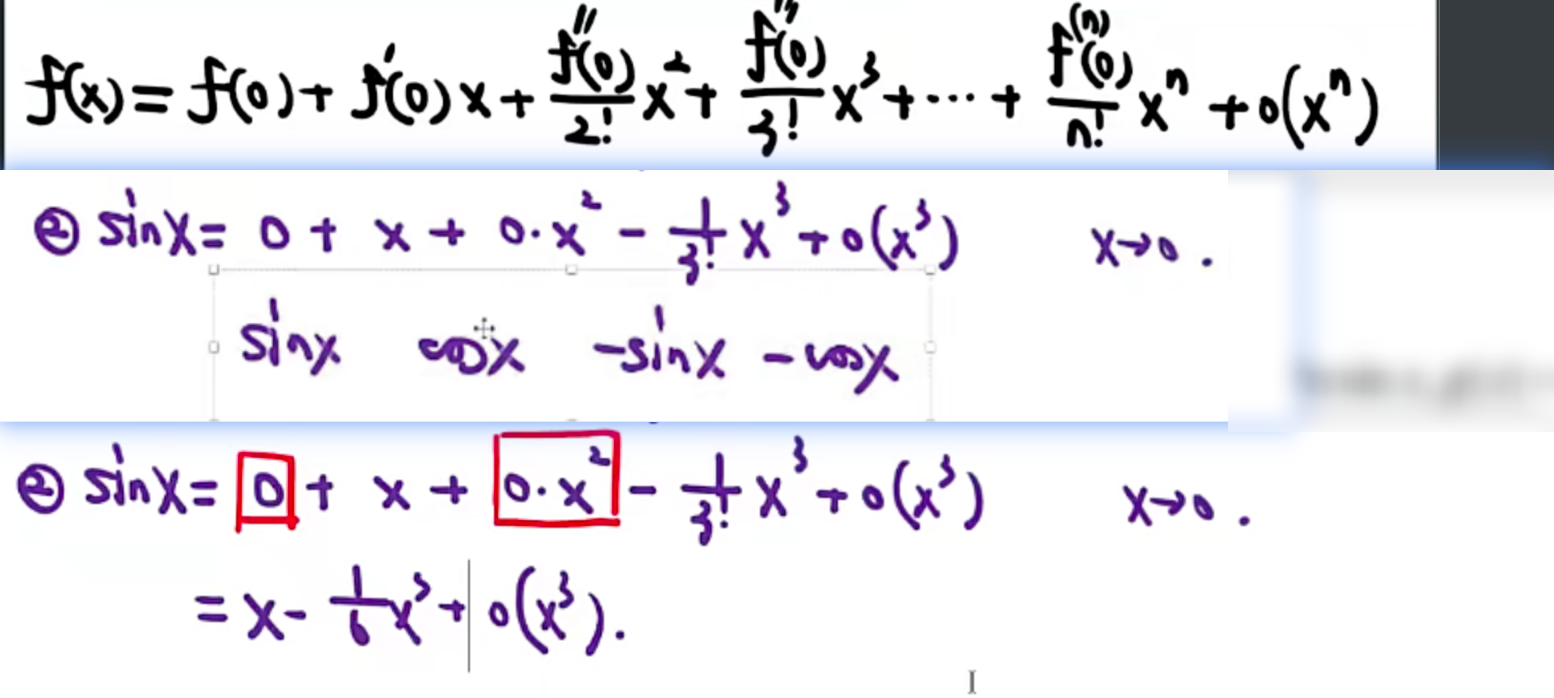 f(x) = f(0) + f'(0)x + \frac{f''(0)}{2!}x^2 + \frac{f'''(0)}{3!}x^3 + ⋯ + \frac{f^{(n)}(0)}{n!}x^n + o(x^n)
② sinx = 0 + x + 0·x^2 - \frac{1}{3!}x^3 + o(x^3) x→0.
sinx cosx -sinx -cosx
② sinx = 0 + x + 0·x^2 - \frac{1}{3!}x^3 + o(x^3) x→0.
= x - \frac{1}{6}x^3 + o(x^3).